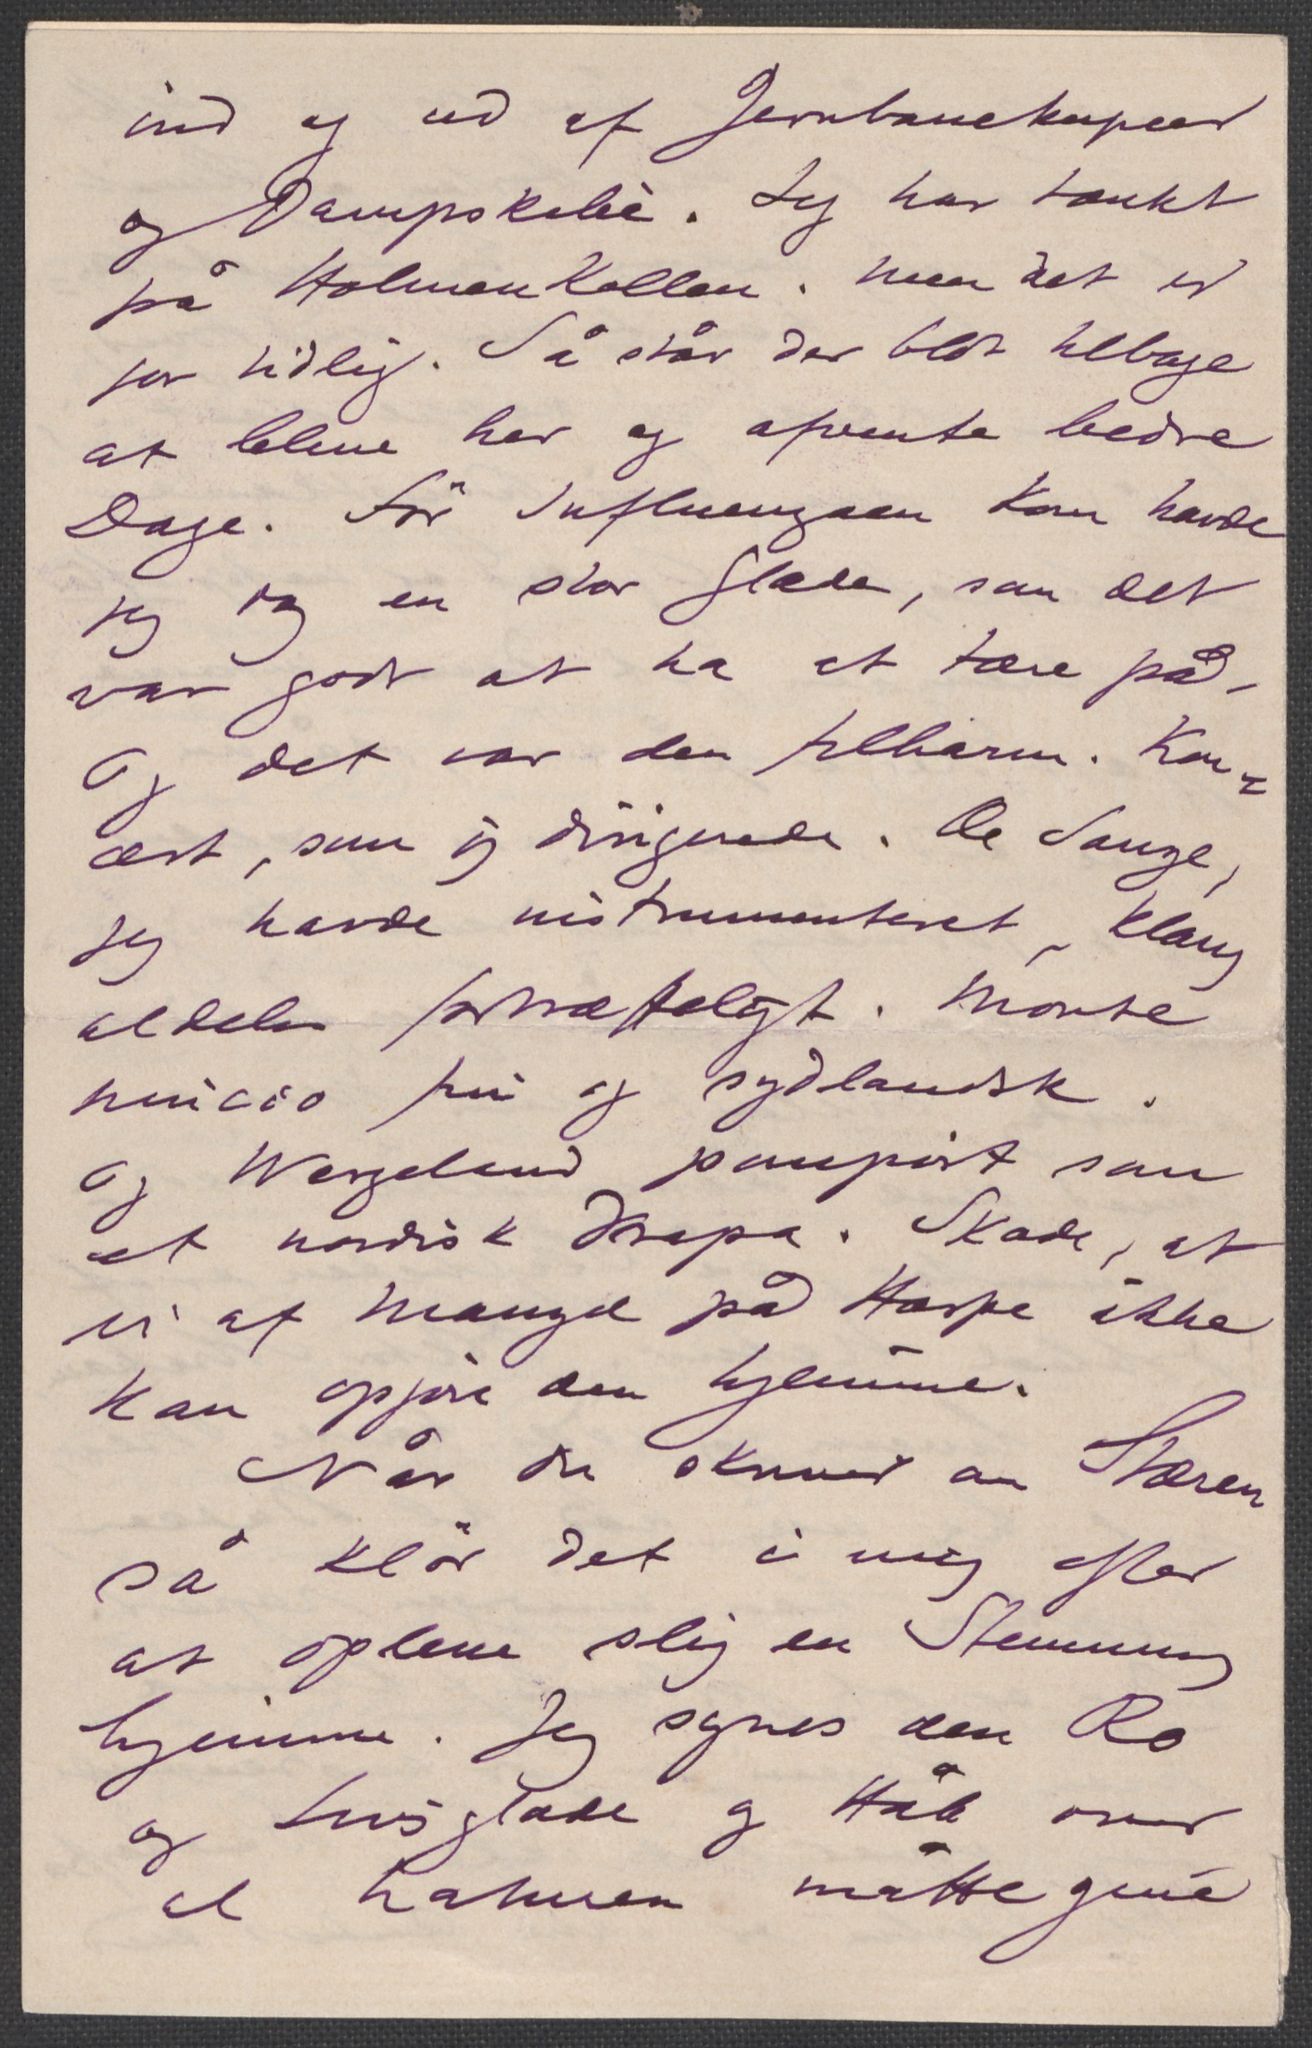 ind og ud af Jernbanekupeer
og Dampskibe. Jeg har tænkt
på Holmenkollen. Men det er
for tidlig. Så står der blot tilbage
at blive her og afvente bedre
Dage. Før Influenzaen kom havde
jeg dog en stor Glæde, som det
var godt at ha at tære på,
Og det var den filharm. Kon-
cert, som jeg dirigerede. De Sange,
jeg havde instrumenteret, klang
aldeles fortræffeligt. Monte
Pincio fin og sydlandsk.
Og Wergeland pompøst som
et nordisk Drapa. Skade, at
vi af Mangel på Harpe ikke
kan opføre den hjemme.
Når du skriver om Stæren
så klør det i mig efter
at opleve slig en Stemning
hjemme. Jeg synes den Ro
og Livsglæde og Håb over
al Naturen måtte give